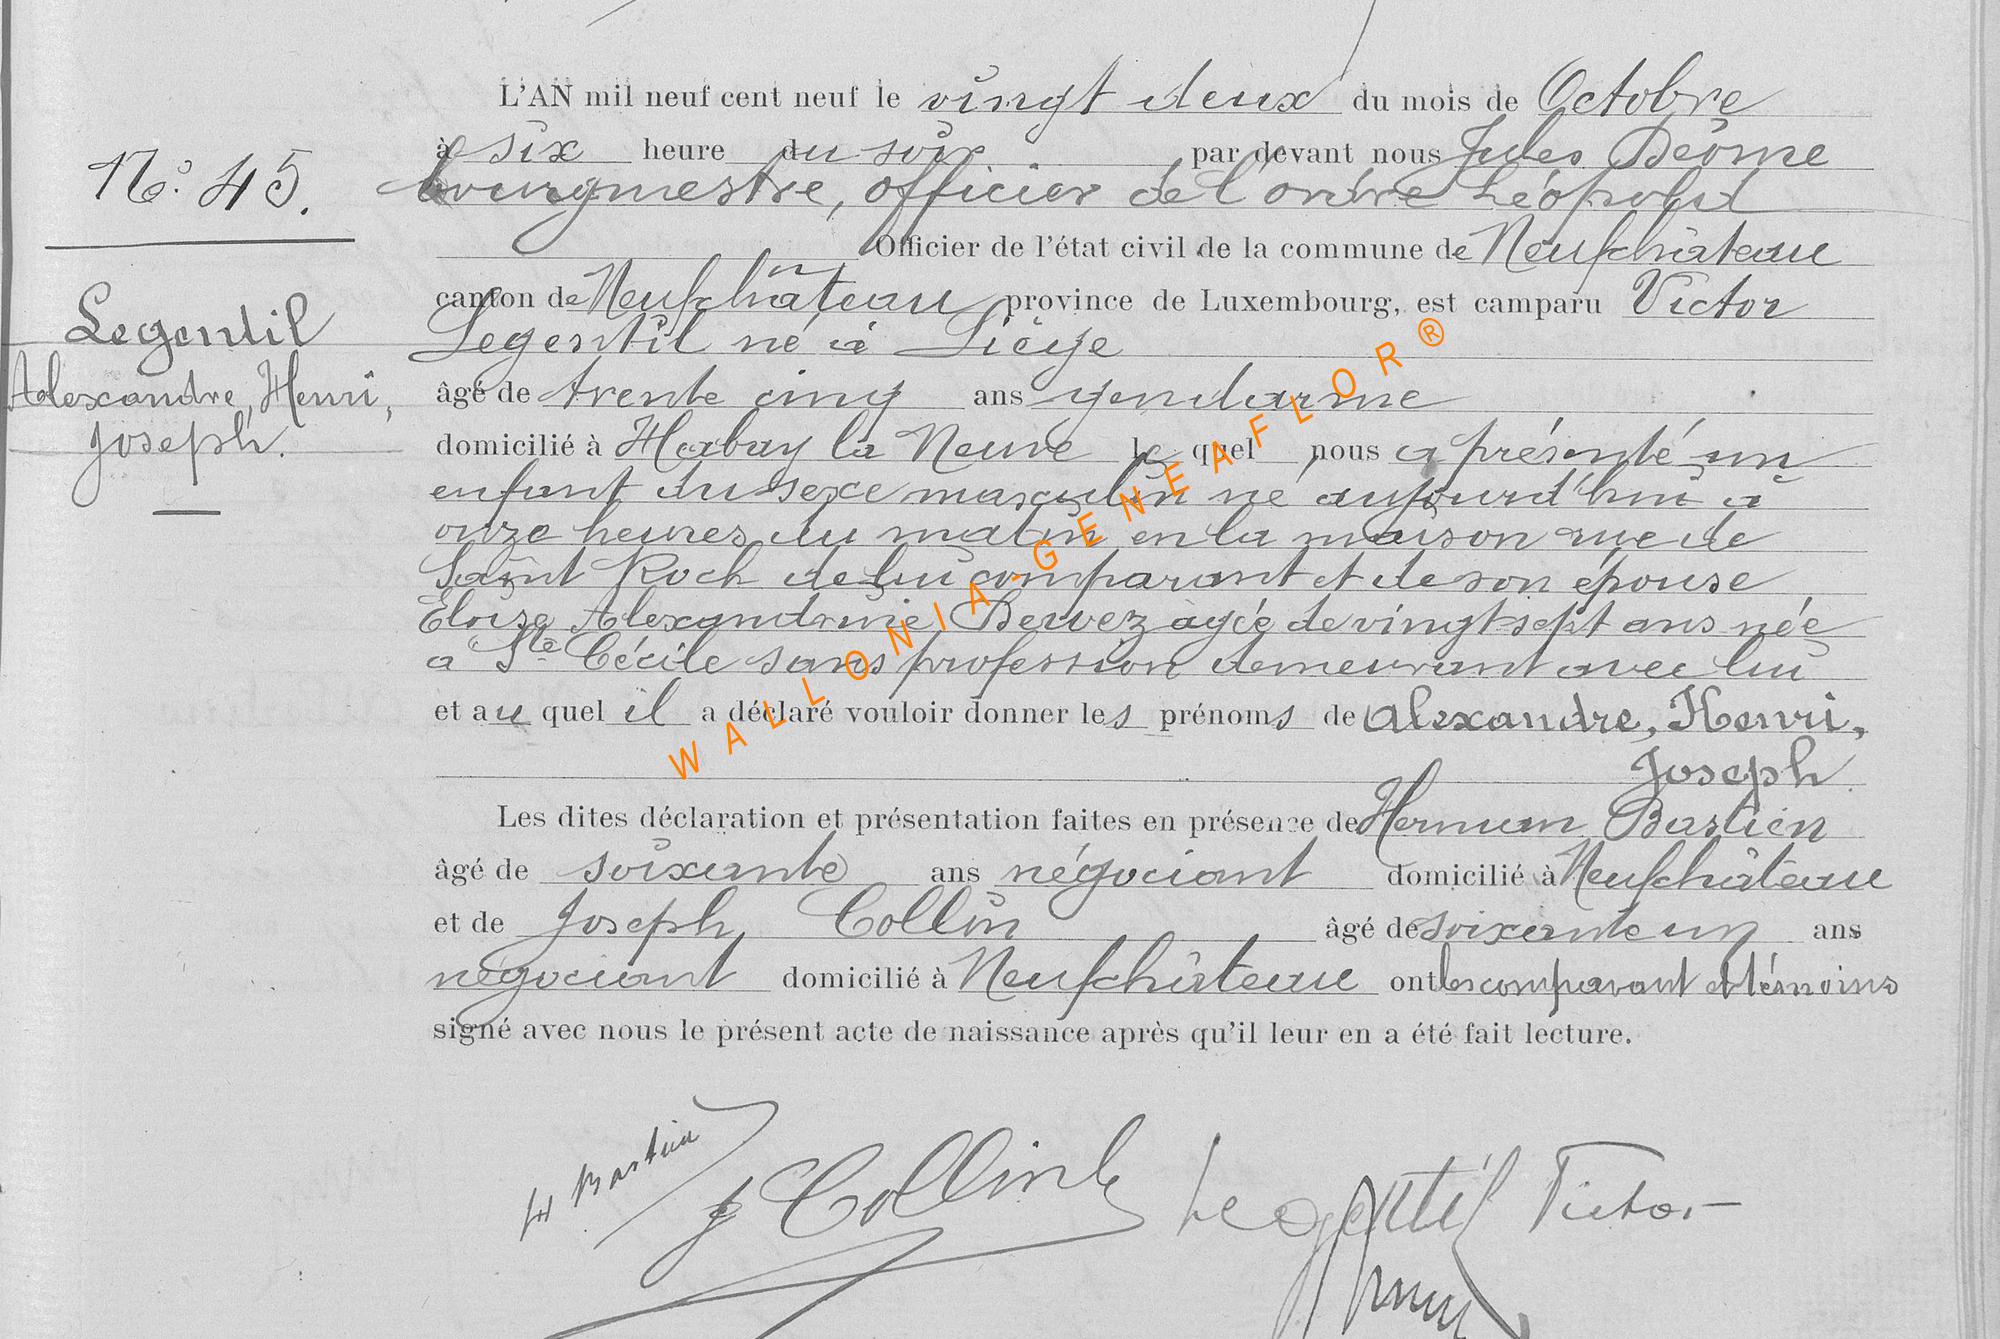 L'AN mil neuf cent neuf le vingt deux du mois de Octobre
à six heure du soir par devant nous Jules Déome
bourgmestre, officier de l'ordre Léopold
Officier de l'état civil de la commune de Neufchâteau
canton de Neufchâteau province de Luxembourg, est camparu Victor
Legentil né à Liège
âgé de trente cinq ans gendarme
domicilié à Habay la Neuve le quel nous a présenté un
enfant du sexe masculin né aujourd'hui à
onze heures du matin en la maison rue de
Saint Roch de lui comparant et de son épouse
Eloïse Alexandrine Dervez agée de vingt sept ans née
a Ste Cécile sans profession demeurant avec lui
et au quel il a déclaré vouloir donner les prénoms de Alexandre, Henri,
Joseph.
Les dites déclaration et présentation faites en présence de Herman Bastien
âgé de soixante ans négociant domicilié à Neufchâteau
et de Joseph Collin âgé de soixante un ans
négociant domicilié à Neufchâteau ont les comparant et témoins
signé avec nous le présent acte de naissance après qu'il leur en a été fait lecture.
No. 45.
Legentil
Alexandre, Henri,
Joseph.
H Bastien
J Collin
Legentil Victor
WALLONIA-GENEAFLOR®